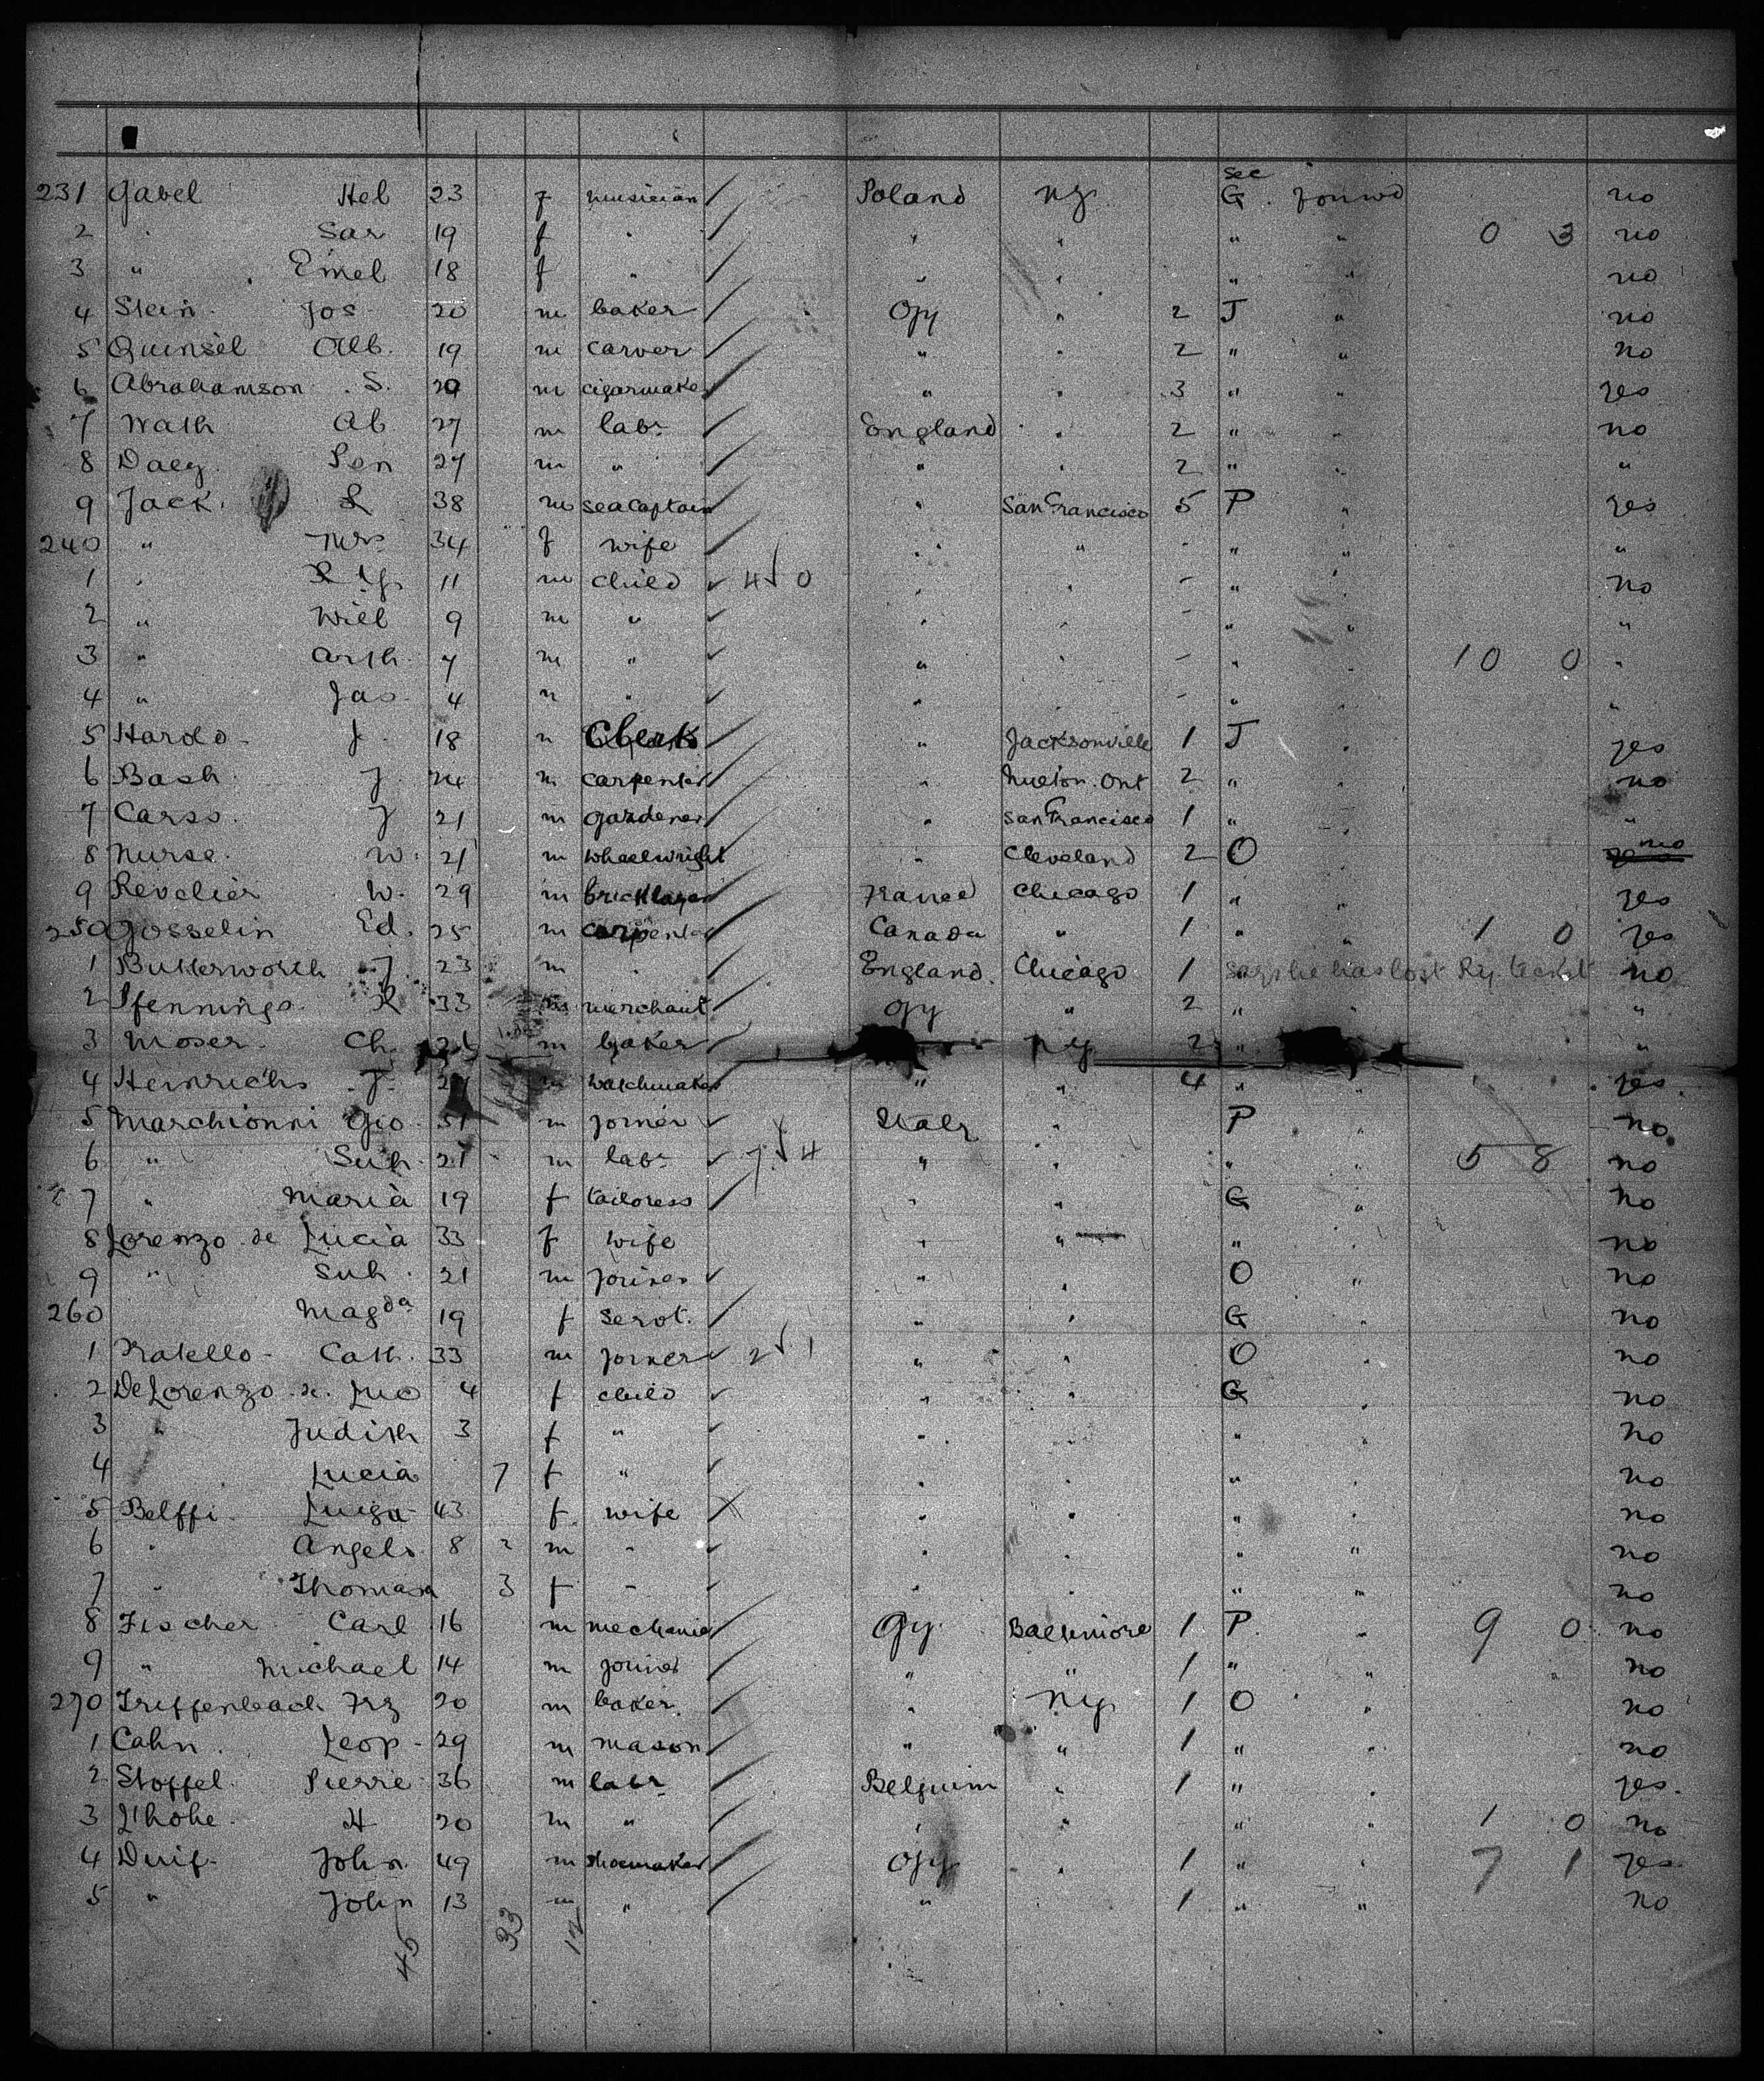 sec
231 Gabel Hel 23 f musician Poland NY G. Forwd no
2 " Sar 19 f " " " " " 0 3 no
3 " Emel 18 f " " " " " no
4 Stein Jos 20 m baker Gy " 2 J " no
5 Quinsel Alb. 19 m carver " " 2 " " no
6 Abrahamson S. 20 m cigarmaker " " 3 " " yes
7 Wath Ab 27 m labr England " 2 " " no
8 Daey 27 m " " " 2 " " "
9 Jack. L 38 m seacaptain " San Francisco 5 P " yes
240 " Mrs 34 f wife " " - " " "
1 " 11 m child 4 0 " " - " " no
2 " Will 9 m " " " - " " "
3 " Arth 7 m " " " - " " 10 0 "
4 " Jas 4 m " " " - " " "
5 Hardo J. 18 m Clerk " Jacksonville 1 J " yes
6 Bash J 24 m carpenter " Ont 2 " " no
7 Carss J 21 m gardener " San Francisco 1 " " "
8 Nurse W. 21 m wheelwright " Cleveland 2 O no
9 Revelier W. 29 m bricklayer France Chicago 1 " " yes
250 Gosselin Ed. 25 m carpenter Canada " 1 " " 1 0 yes
1 Butterworth J. 23 m " England. Chicago 1 says he has lost Ry ticket no
2 Pfennings R 33 m merchant Gy " 2 " " "
3 Moser Ch. m baker NY 2 " "
4 Heinrichs J. m watchmaker " " 4 " " yes
5 Marchionni Gio 31 m joiner Italy " P " no
6 " 21 m labr 7 4 " " " " 5 8 no
7 " Maria 19 f tailoress " " G " no
8 Lorenzo de Lucia 33 f wife " " " " no
9 " 21 m joiner " " O " no
260 Magda 19 f servt. " " G " no
1 Cath. 33 m joiner 2 1 " " O " no
2 DeLorenzo de. Luc 4 f child " " G " no
3 " Judith 3 f " " " " " no
4 Lucia 7 f " " " " " no
5 Belffi Luiga 43 f wife " " " " no
6 " Angelo 8 m " " " " " no
7 " Thomasa 3 f " " " " " no
8 Fischer Carl 16 m mechanic Gy. Baltimore 1 P. " 9 0 no
9 " Michael 14 m joiner " " 1 " " no
270 Trieffenbach Frz 20 m baker " NY 1 O " no
1 Cahn Leop 29 m mason " " 1 " " no
2 Stoffel Pierre 36 m labr Belguim " 1 " " yes.
3 L'hohe H 20 m " " " " " 1 0 no
4 Duif John 49 m shoemaker Gy " 1 " " 7 1 yes
5 " John 13 m " " " 1 " " no
45 33 12